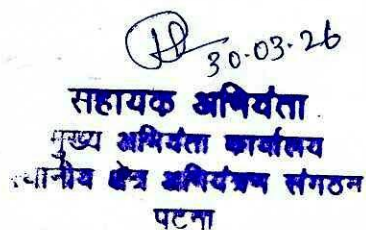 30.03.26
सहायक अभियंता
मुख्य अभियंता कार्यालय
स्थानीय क्षेत्र अभियंत्रण संगठन
पटना